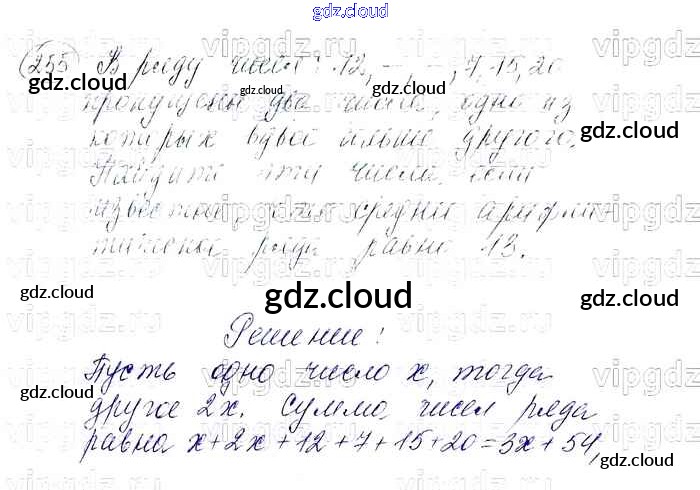 gdz.cloud
255 В ряду чисел: 12, –, –, 7, 15, 20
пропущены два числа, одно из
которых вдвое больше другого.
Найдите эти числа, если
известно, среднее арифме-
тическое ряда равно 13.
Решение!
Пусть одно число x, тогда
другое 2x. Сумма чисел ряда
равна x+2x+12+7+15+20=3x+54,
gdz.cloud
gdz.cloud
gdz.cloud
gdz.cloud
gdz.cloud
gdz.cloud
gdz.cloud